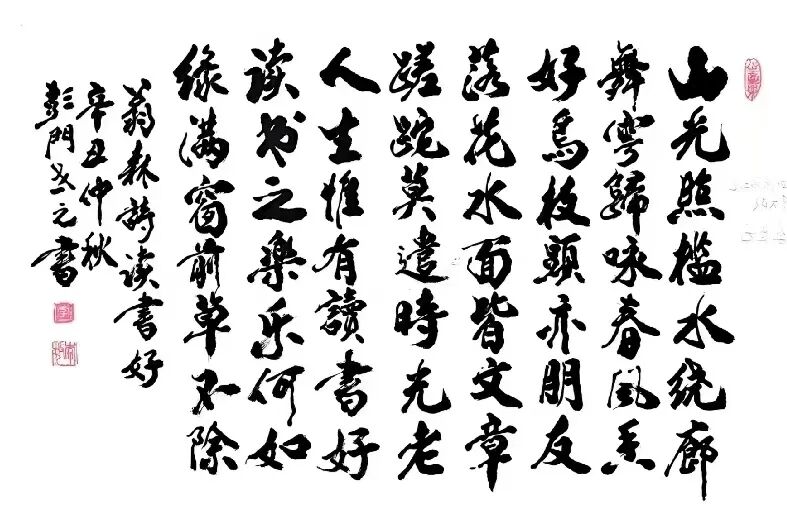 山光照槛水绕廊
舞雩歸咏春風香
好鳥枝頭亦朋友
落花水面皆文章
蹉跎莫遣時光老
人生惟有讀書好
读书之樂乐何如
绿满窗前草不除
翁森詩读書好
辛丑仲秋
彭門之書